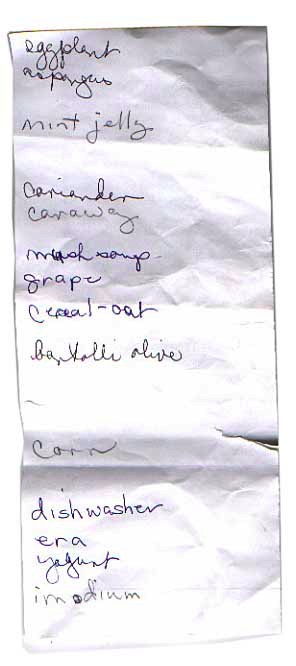 eggplant
aspargus
mint jelly
coriander
caraway
mush soup
grape
cereal-oat
bartolli olive
corn
dishwasher
era
yogurt
imodium